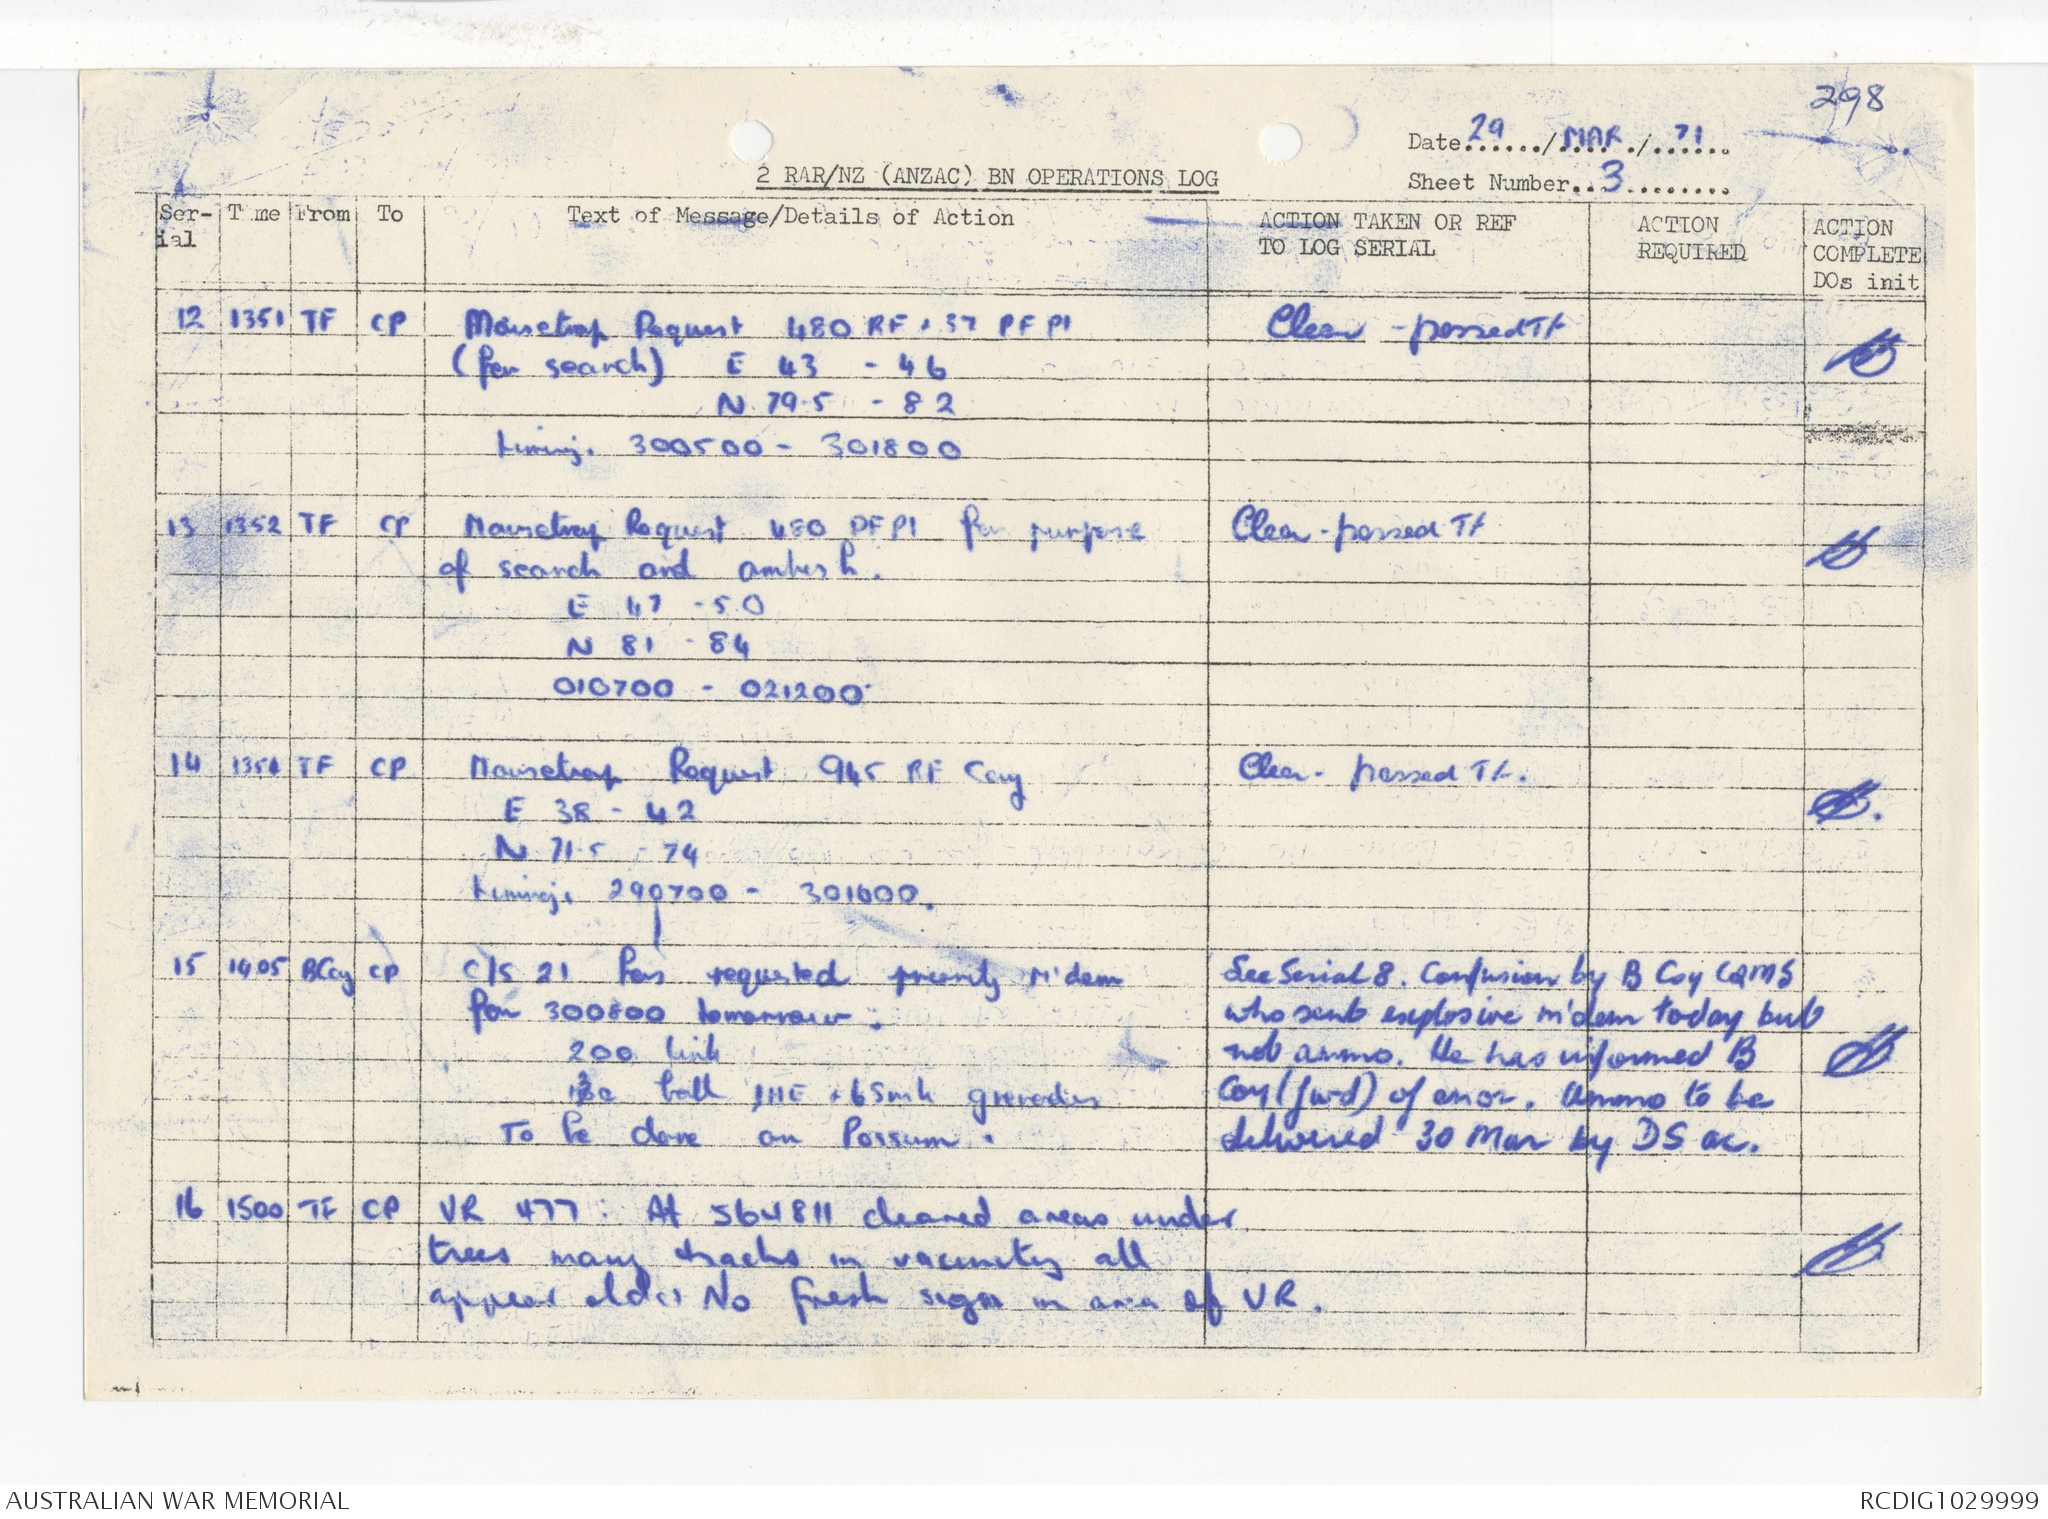 298
Date 29 / MAR / 71
2 RAR/NZ (ANZAC) BN OPERATIONS LOG
Sheet Number 3
Ser-ial Time From To Text of Message/Details of Action ACTION TAKEN OR REF TO LOG SERIAL ACTION REQUIRED ACTION COMPLETE DOs init
12 1351 TF CP Mousetrap Request 480 RF + 37 PF Pl Clear - passed TF
(for search) E 43 - 46
N 79.5 - 82
timing. 300500 - 301800
13 1352 TF CP Mousetrap Request 480 PF Pl for purpose Clear - passed TF
of search and ambush.
E 47 - 50
N 81 - 84
010700 - 021200
14 1354 TF CP Mousetrap Request 945 RF Coy Clear - passed TF.
E 38 - 42
N 71.5 - 74
timing. 290700 - 301600.
15 1405 B Coy CP C/S 21 has requested priority m'dem See Serial 8. Confusion by B Coy CQMS
for 300800 tomorrow. who sent explosive m'dem today but
200 link not ammo. He has informed B
ball 1HE + 6 Smk grenades Coy (fwd) of error. Ammo to be
To be done on Possum. delivered 30 Mar by DS ac.
16 1500 TF CP VR 477: At 564811 cleared areas under
trees many tracks in vacinity all
appear old. No fresh sign in area of VR.
AUSTRALIAN WAR MEMORIAL
RCDIG1029999